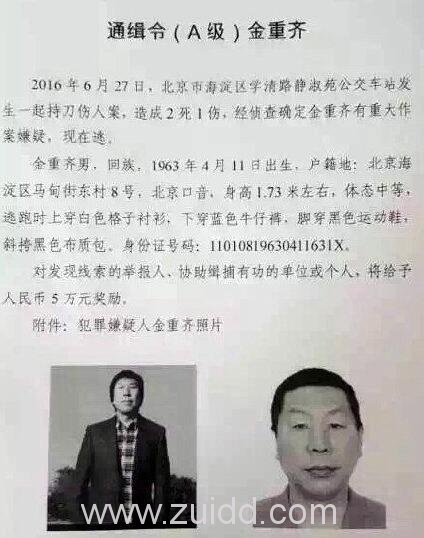 通缉令（A 级）金重齐
2016 年 6 月 27 日，北京市海淀区学清路静淑苑公交车站发
生一起持刀伤人案，造成 2 死 1 伤，经侦查确定金重齐有重大作
案嫌疑，现在逃。
金重齐男，回族，1963 年 4 月 11 日出生，户籍地：北京海
淀区马甸街东村 8 号，北京口音，身高 1.73 米左右，体态中等，
逃跑时上穿白色格子衬衫，下穿蓝色牛仔裤，脚穿黑色运动鞋，
斜挎黑色布质包。身份证号码：11010819630411631X。
对发现线索的举报人、协助缉捕有功的单位或个人，将给予
人民币 5 万元奖励。
附件：犯罪嫌疑人金重齐照片
www.zuidd.com